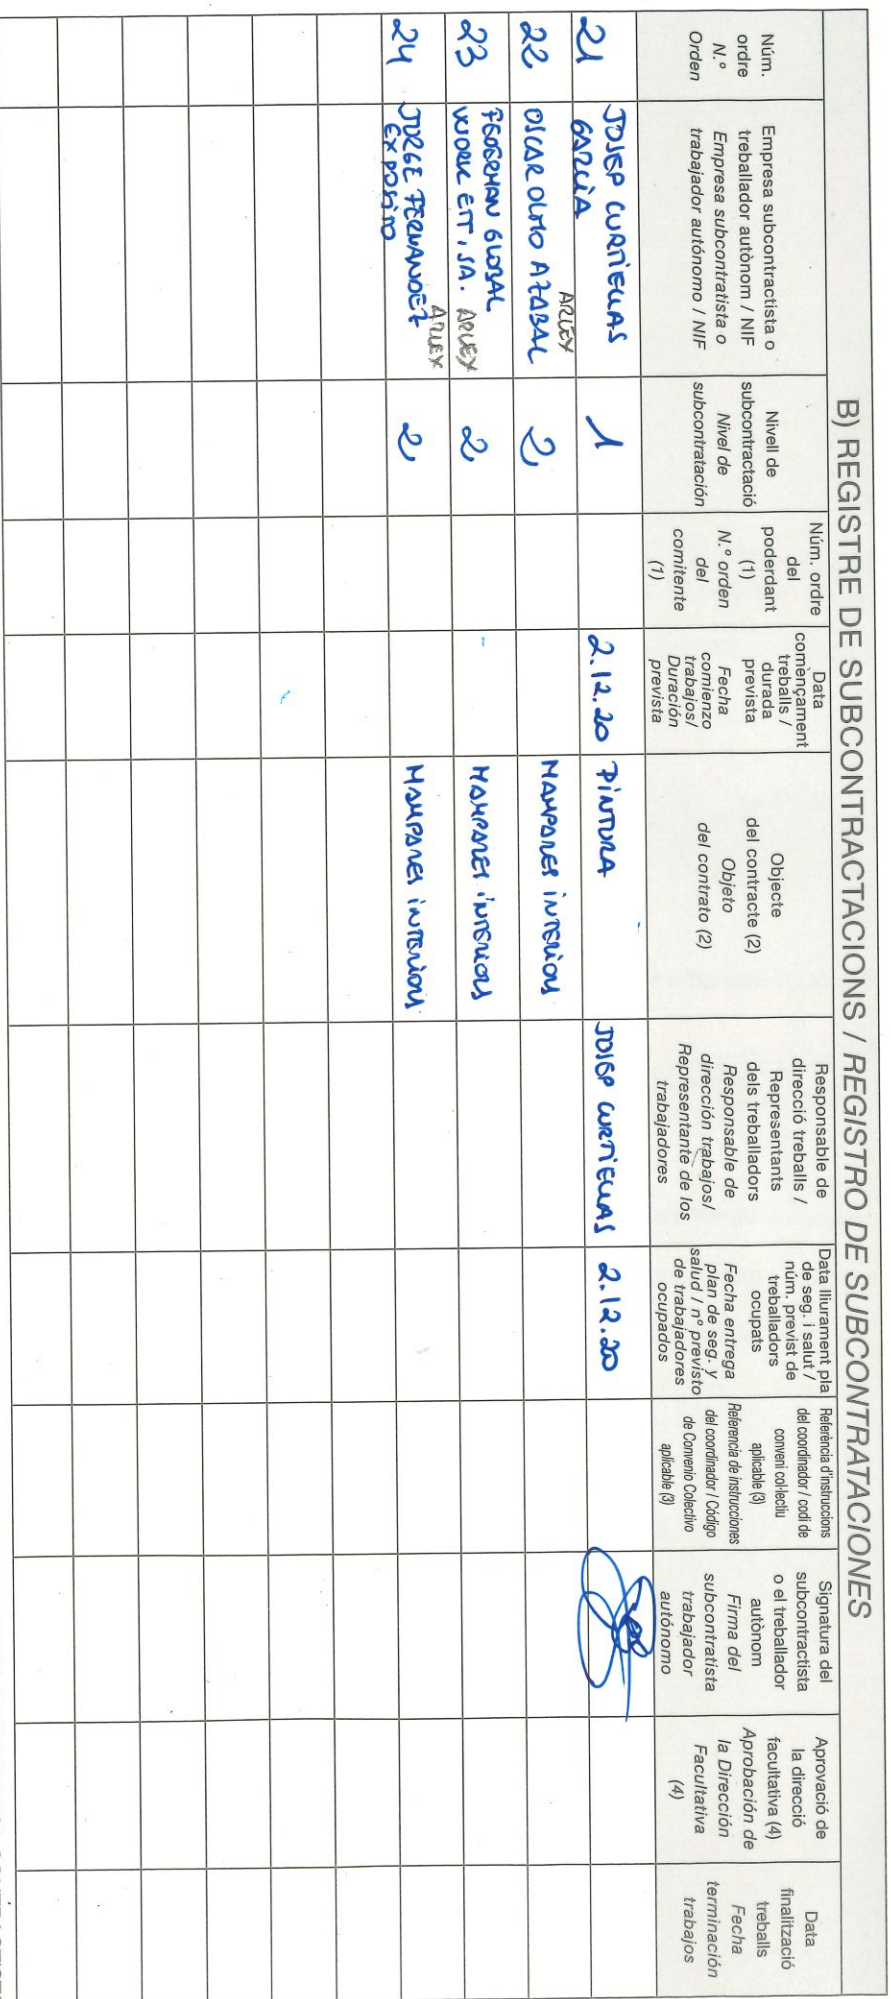 B) REGISTRE DE SUBCONTRACTACIONS / REGISTRO DE SUBCONTRATACIONES
Núm.
ordre
N.º
Orden
Empresa subcontractista o
treballador autònom / NIF
Empresa subcontratista o
trabajador autónomo / NIF
Nivell de
subcontractació
Nivel de
subcontratación
Núm. ordre
del
poderdant
(1)
N.º orden
del
comitente
(1)
Data
començament
treballs /
durada
prevista
Fecha
comienzo
trabajos/
Duración
prevista
Objecte
del contracte (2)
Objeto
del contrato (2)
Responsable de
direcció treballs /
Representants
dels treballadors
Responsable de
dirección trabajos/
Representante de los
trabajadores
Data lliurament pla
de seg. i salut /
núm. previst de
treballadors
ocupats
Fecha entrega
plan de seg. y
salud / nº previsto
de trabajadores
ocupados
Referència d'instruccions
del coordinador / codi de
conveni col·lectiu
aplicable (3)
Referencia de instrucciones
del coordinador / Código
de Convenio Colectivo
aplicable (3)
Signatura del
subcontractista
o el treballador
autònom
Firma del
subcontratista
trabajador
autónomo
Aprovació de
la direcció
facultativa (4)
Aprobación de
la Dirección
Facultativa
(4)
Data
finalització
treballs
Fecha
terminación
trabajos
21
JOSEP CURTIELLAS
GARCÍA
1
2.12.20
PINTURA
JOSEP CURTIELLAS
2.12.20
22
ARLEX
OSCAR OLMO AZABAL
2
MAMPARES INTERIORS
23
GLOBAL
WORK ETT, SA. ARLEX
2
MAMPARES INTERIORS
24
JORGE FERNANDEZ
EXPOSITO
ARLEX
2
MAMPARES INTERIORS